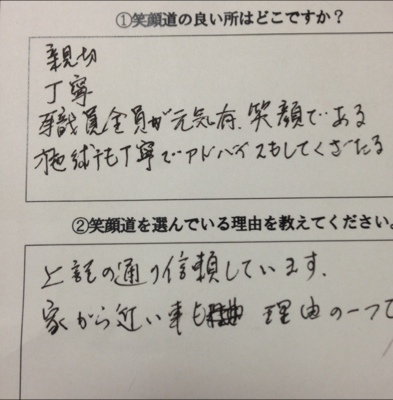 ①笑顔道の良い所はどこですか?
親切
丁寧
職員全員が元気有、笑顔である
施術も丁寧でアドバイスもしてくださる
②笑顔道を選んでいる理由を教えてください。
上記の通り信頼しています。
家から近い事も 理由の一つで